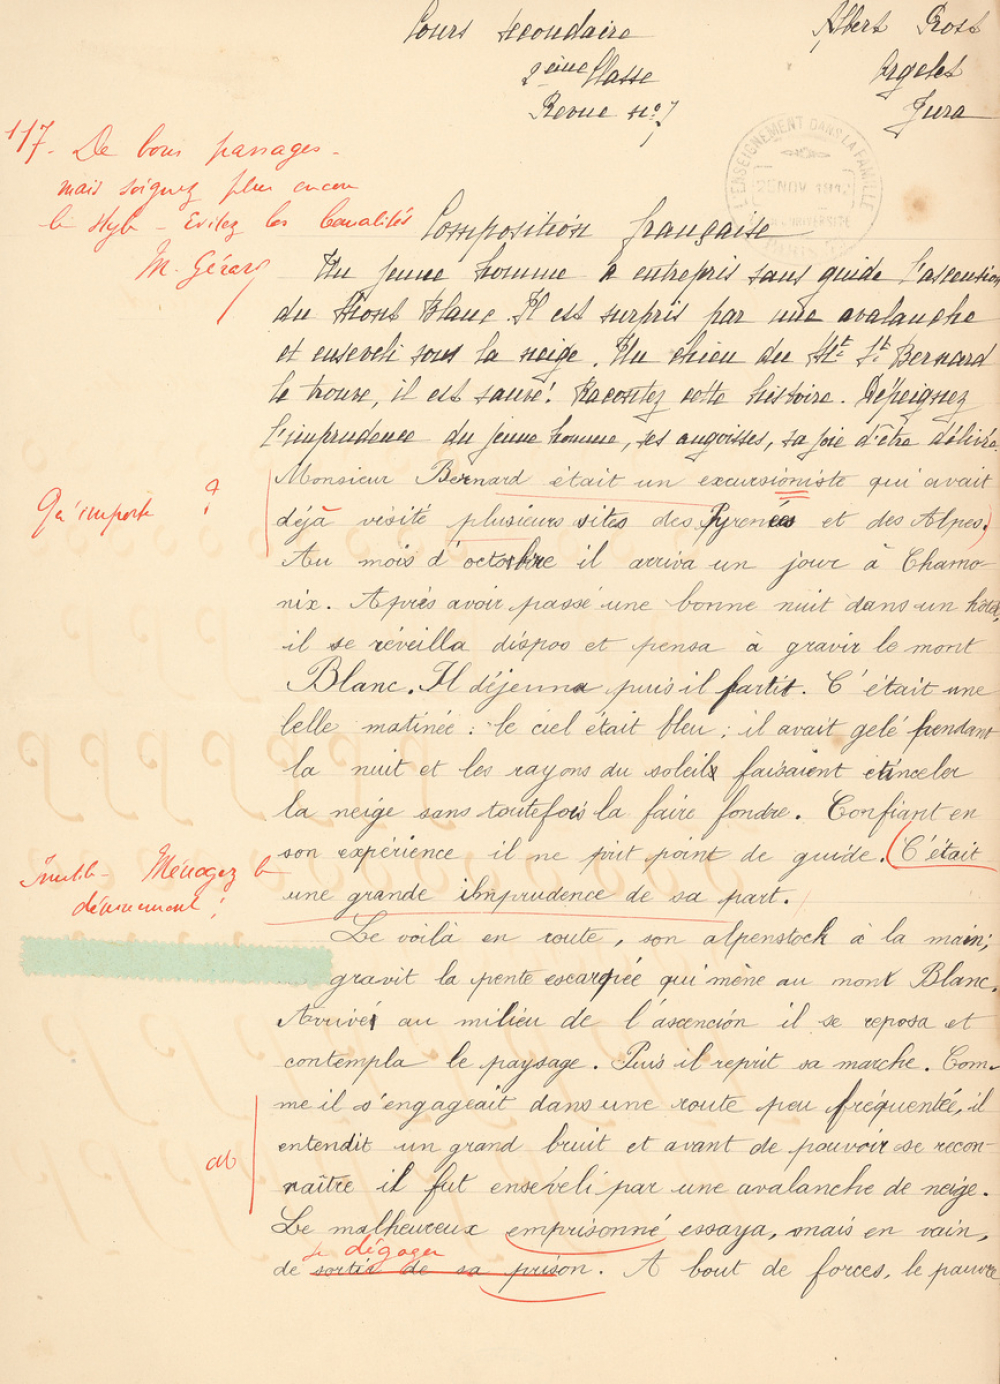 Cours secondaire
Albert Prost
2ème Classe
Orgelet
Revue no. 7
Jura
L'ENSEIGNEMENT DANS LA FAMILLE
25 NOV 1912
117. De bons passages.
mais soignez plus encore
le style - Evitez les banalités
M. Gérard
Composition française
Un jeune homme a entrepris sans guide l'ascension
du Mont Blanc. Il est surpris par une avalanche
et enseveli sous la neige. Un chien du Mt St Bernard
le trouve, il est sauvé! Racontez cette histoire. Dépeignez
l'imprudence du jeune homme, ses angoisses, sa joie d'être délivré.
Monsieur Bernard était un excursioniste qui avait
Qu'importe ?
déjà visité plusieurs sites des Pyrenées et des Alpes.
Au mois d'octobre il arriva un jour à Chamo-
nix. Après avoir passé une bonne nuit dans un hôtel,
il se réveilla dispos et pensa à gravir le mont
Blanc. Il déjeuna puis il partit. C'était une
belle matinée : le ciel était bleu ; il avait gelé pendant
la nuit et les rayons du soleil faisaient étinceler
la neige sans toutefois la faire fondre. Confiant en
son expérience il ne prit point de guide. C'était
Inutile - Ménagez le
dénouement !
une grande imprudence de sa part.
Le voilà en route, son alpenstock à la main;
gravit la pente escarpée qui mène au mont Blanc.
Arrivé au milieu de l'ascención il se reposa et
contempla le paysage. Puis il reprit sa marche. Com-
me il s'engageait dans une route peu fréquentée, il
entendit un grand bruit et avant de pouvoir se recon-
ab
naître il fut enséveli par une avalanche de neige.
Le malheureux emprisonné essaya, mais en vain,
se dégager
de sortir de sa prison. A bout de forces, le pauvre